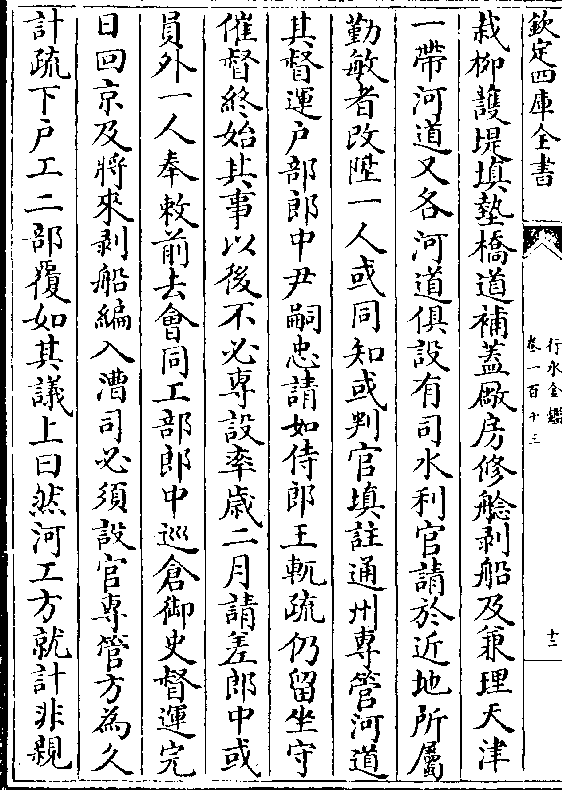 欽定四庫全書
行水金鑑
卷一百十三
十二
栽柳護堤填墊橋道補蓋廠房修艌剥船及兼理天津
一帶河道又各河道俱設有司水利官請於近地所屬
勤敏者改陞一人或同知或判官填註通州專管河道
其督運户部郎中尹嗣忠請如侍郎王軏疏仍留坐守
催督終始其事以後不必專設率歲二月請差郎中或
員外一人奉敕前去會同工部郎中巡倉御史督運完
日回京及將來剥船編入漕司必須設官專管方為久
計疏下户工二部覆如其議上曰然河工方就計非親